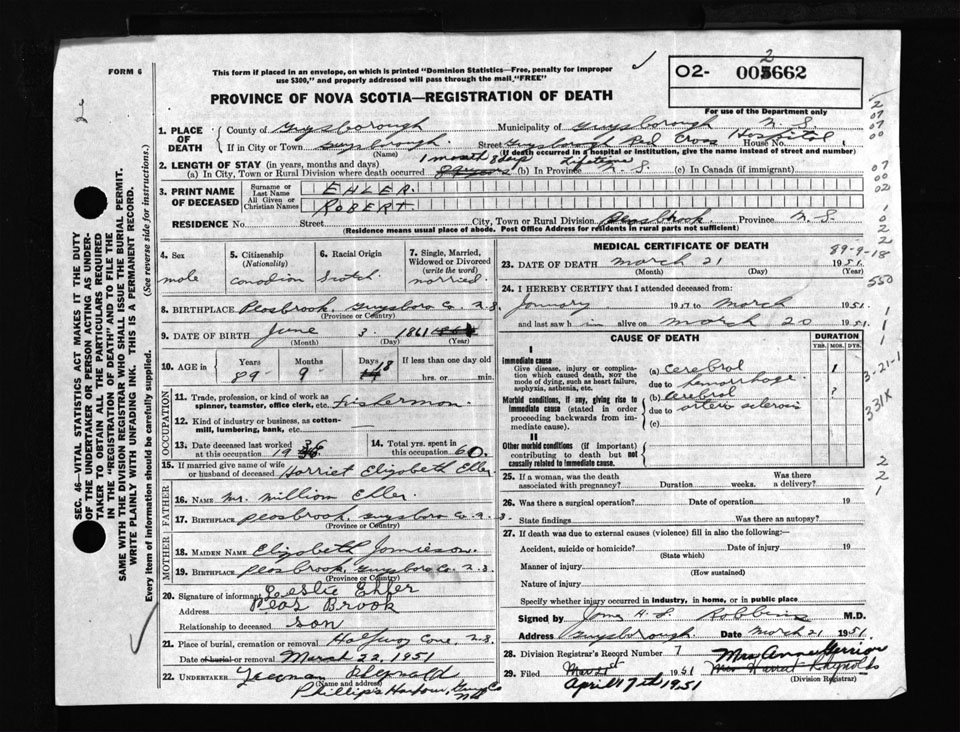 FORM 6
This form if placed in an envelope, on which is printed "Dominion Statistics—Free, penalty for improper
use $300," and properly addressed will pass through the mail, "FREE"
O2- 002662
For use of the Department only
PROVINCE OF NOVA SCOTIA—REGISTRATION OF DEATH
1. PLACE OF DEATH
County of Guysborough Municipality of Guysborough N. S.
If in City or Town Guysborough (Name) Street Guysborough Red Cross Hospital House No.
(If death occurred in a hospital or institution, give the name instead of street and number)
2. LENGTH OF STAY (in years, months and days)
(a) In City, Town or Rural Division where death occurred 1 month 8 days (b) In Province Lifetime N. S. (c) In Canada (if immigrant)
3. PRINT NAME OF DECEASED
Surname or Last Name EHLER.
All Given or Christian Names ROBERT
RESIDENCE No. Street City, Town or Rural Division Peasbrook. Province N. S.
(Residence means usual place of abode. Post Office Address for residents in rural parts not sufficient)
4. Sex male
5. Citizenship (Nationality) canadian
6. Racial Origin Scotch.
7. Single, Married, Widowed or Divorced (write the word) married.
8. BIRTHPLACE Peasbrook, Guysboro Co. N. S.
(Province or Country)
9. DATE OF BIRTH June 3. 1861
(Month) (Day) (Year)
10. AGE in Years 89 Months 9 Days 18 If less than one day old hrs. or min.
OCCUPATION
11. Trade, profession, or kind of work as spinner, teamster, office clerk, etc. fisherman.
12. Kind of industry or business, as cotton-mill, lumbering, bank, etc.
13. Date deceased last worked at this occupation 1936
14. Total yrs. spent in this occupation 60.
15. If married give name of wife or husband of deceased Harriet Elizabeth Eller.
FATHER
16. NAME Mr. William Eller.
17. BIRTHPLACE Peasbrook, Guysboro Co. N. S.
(Province or Country)
MOTHER
18. MAIDEN NAME Elizabeth Jamieson.
19. BIRTHPLACE Peasbrook, Guysboro Co. N. S.
(Province or Country)
20. Signature of informant Leslie Ehler
Address Peas Brook
Relationship to deceased son
21. Place of burial, cremation or removal Halfway Cove N. S.
Date of burial or removal March 22, 1951
22. UNDERTAKER Reynolds
(Name and address)
Phillips Harbour, Guys Co NS
MEDICAL CERTIFICATE OF DEATH
89-9-18
23. DATE OF DEATH March 21 1951
(Month) (Day) (Year)
24. I HEREBY CERTIFY that I attended deceased from:
January 1951 to March 1951
and last saw him alive on March 20 1951
CAUSE OF DEATH
DURATION
YRS. MOS. DYS.
I
Immediate cause
Give disease, injury or complication which caused death, NOT the mode of dying, such as heart failure, asphyxia, asthenia, etc.
(a) cerebral
due to hemorrhage 1
Morbid conditions, if any, giving rise to immediate cause (stated in order proceeding backwards from immediate cause).
(b) cerebral ?
due to arterio sclerosis
(c)
II
Other morbid conditions (if important) contributing to death but not causally related to immediate cause.
25. If a woman, was the death associated with pregnancy? Duration weeks. Was there a delivery?
26. Was there a surgical operation? Date of operation 19
State findings Was there an autopsy?
27. If death was due to external causes (violence) fill in also the following:—
Accident, suicide or homicide? Date of injury 19
(State which)
Manner of injury
(How sustained)
Nature of injury
Specify whether injury occurred in industry, in home, or in public place
Signed by H. Robbins M.D.
Address Guysborough Date March 21 1951.
28. Division Registrar's Record Number 7
29. Filed Mar 21st 1951 Mrs Harriet Reynolds
April 17th 1951 Mrs Anna
(Division Registrar)
550
3-21-1
331X
SEC. 46—VITAL STATISTICS ACT MAKES IT THE DUTY
OF THE UNDERTAKER OR PERSON ACTING AS UNDER-
TAKER TO OBTAIN ALL THE PARTICULARS REQUIRED
IN THE "REGISTRATION OF DEATH" AND TO FILE THE
SAME WITH THE DIVISION REGISTRAR WHO SHALL ISSUE THE BURIAL PERMIT.
WRITE PLAINLY WITH UNFADING INK. THIS IS A PERMANENT RECORD.
Every item of information should be carefully supplied. (See reverse side for instructions.)